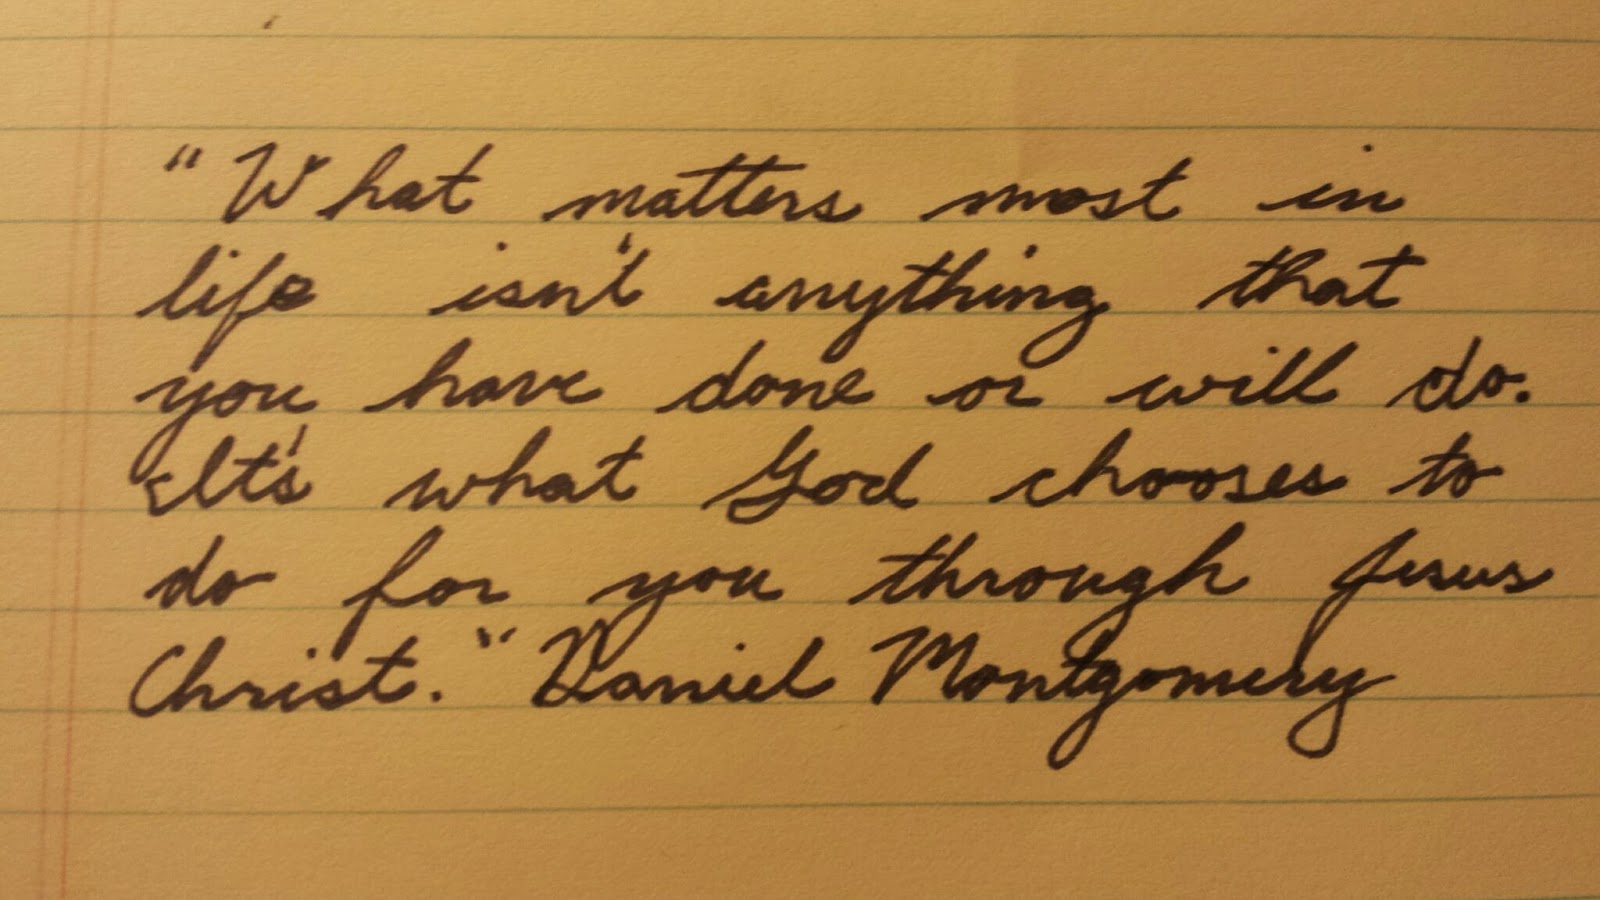 "What matters most in
life isn't anything that
you have done or will do.
It's what God chooses to
do for you through Jesus
Christ." Daniel Montgomery